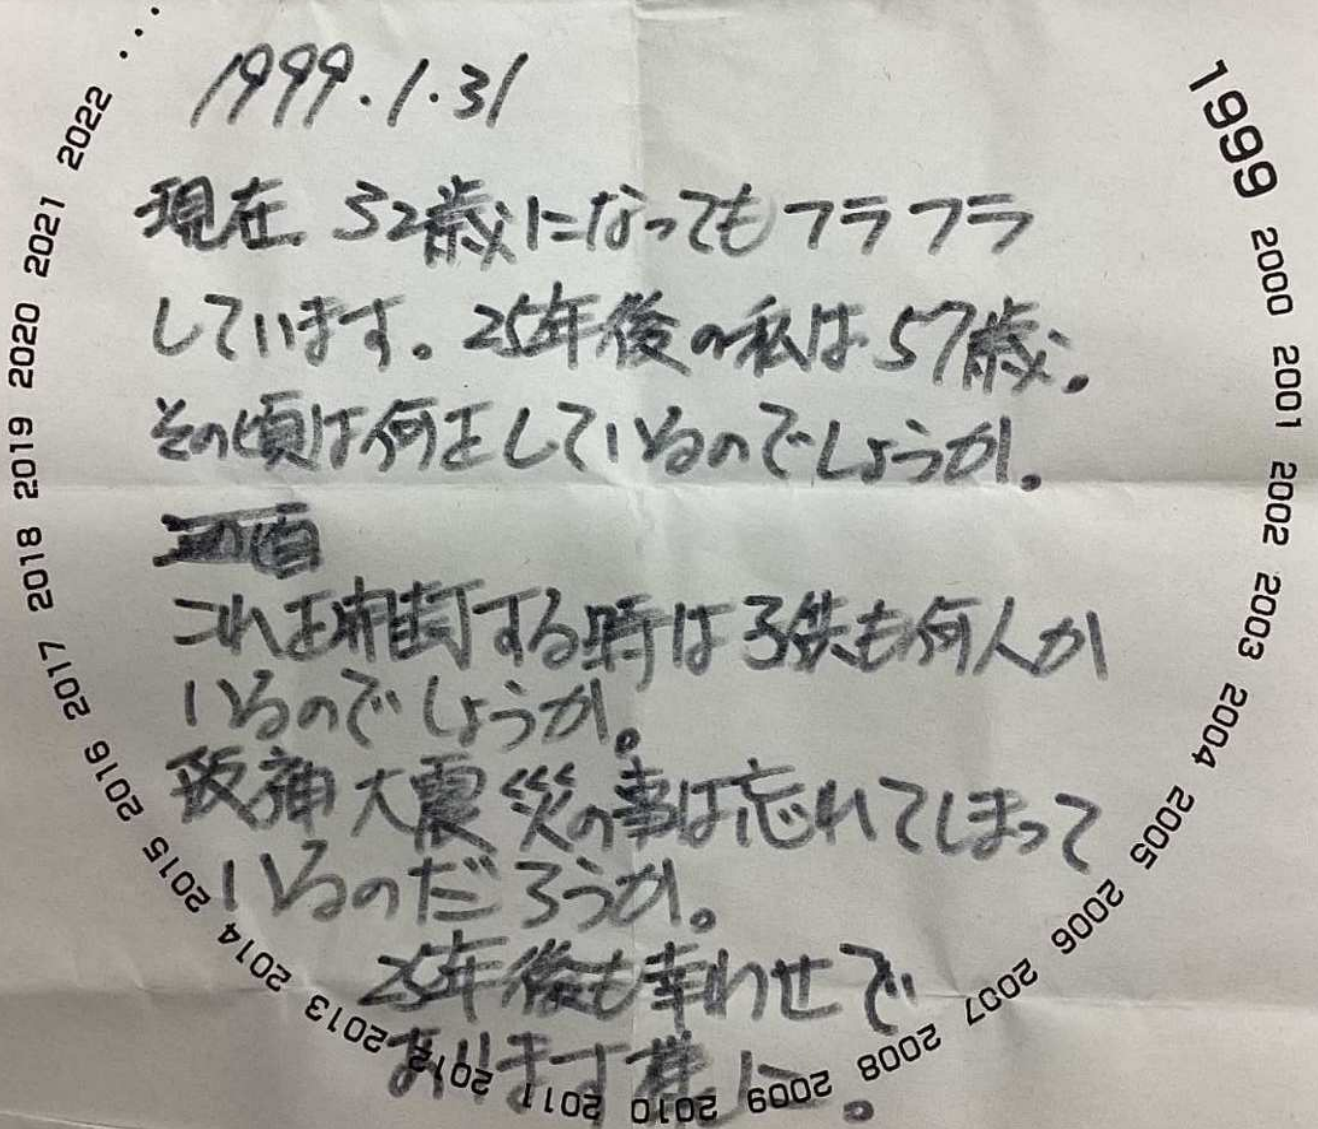 1999.1.31
現在、32歳になってもフラフラ
しています。25年後の私は57歳。
その頃は何をしているのでしょうか。
これを開封する時は子供も何人か
いるのでしょうか。
阪神大震災の事は忘れてしまって
いるのだろうか。
25年後も幸わせで
あります様に。
1999 2000 2001 2002 2003 2004 2005 2006 2007 2008 2009 2010 2011 2012 2013 2014 2015 2016 2017 2018 2019 2020 2021 2022 …